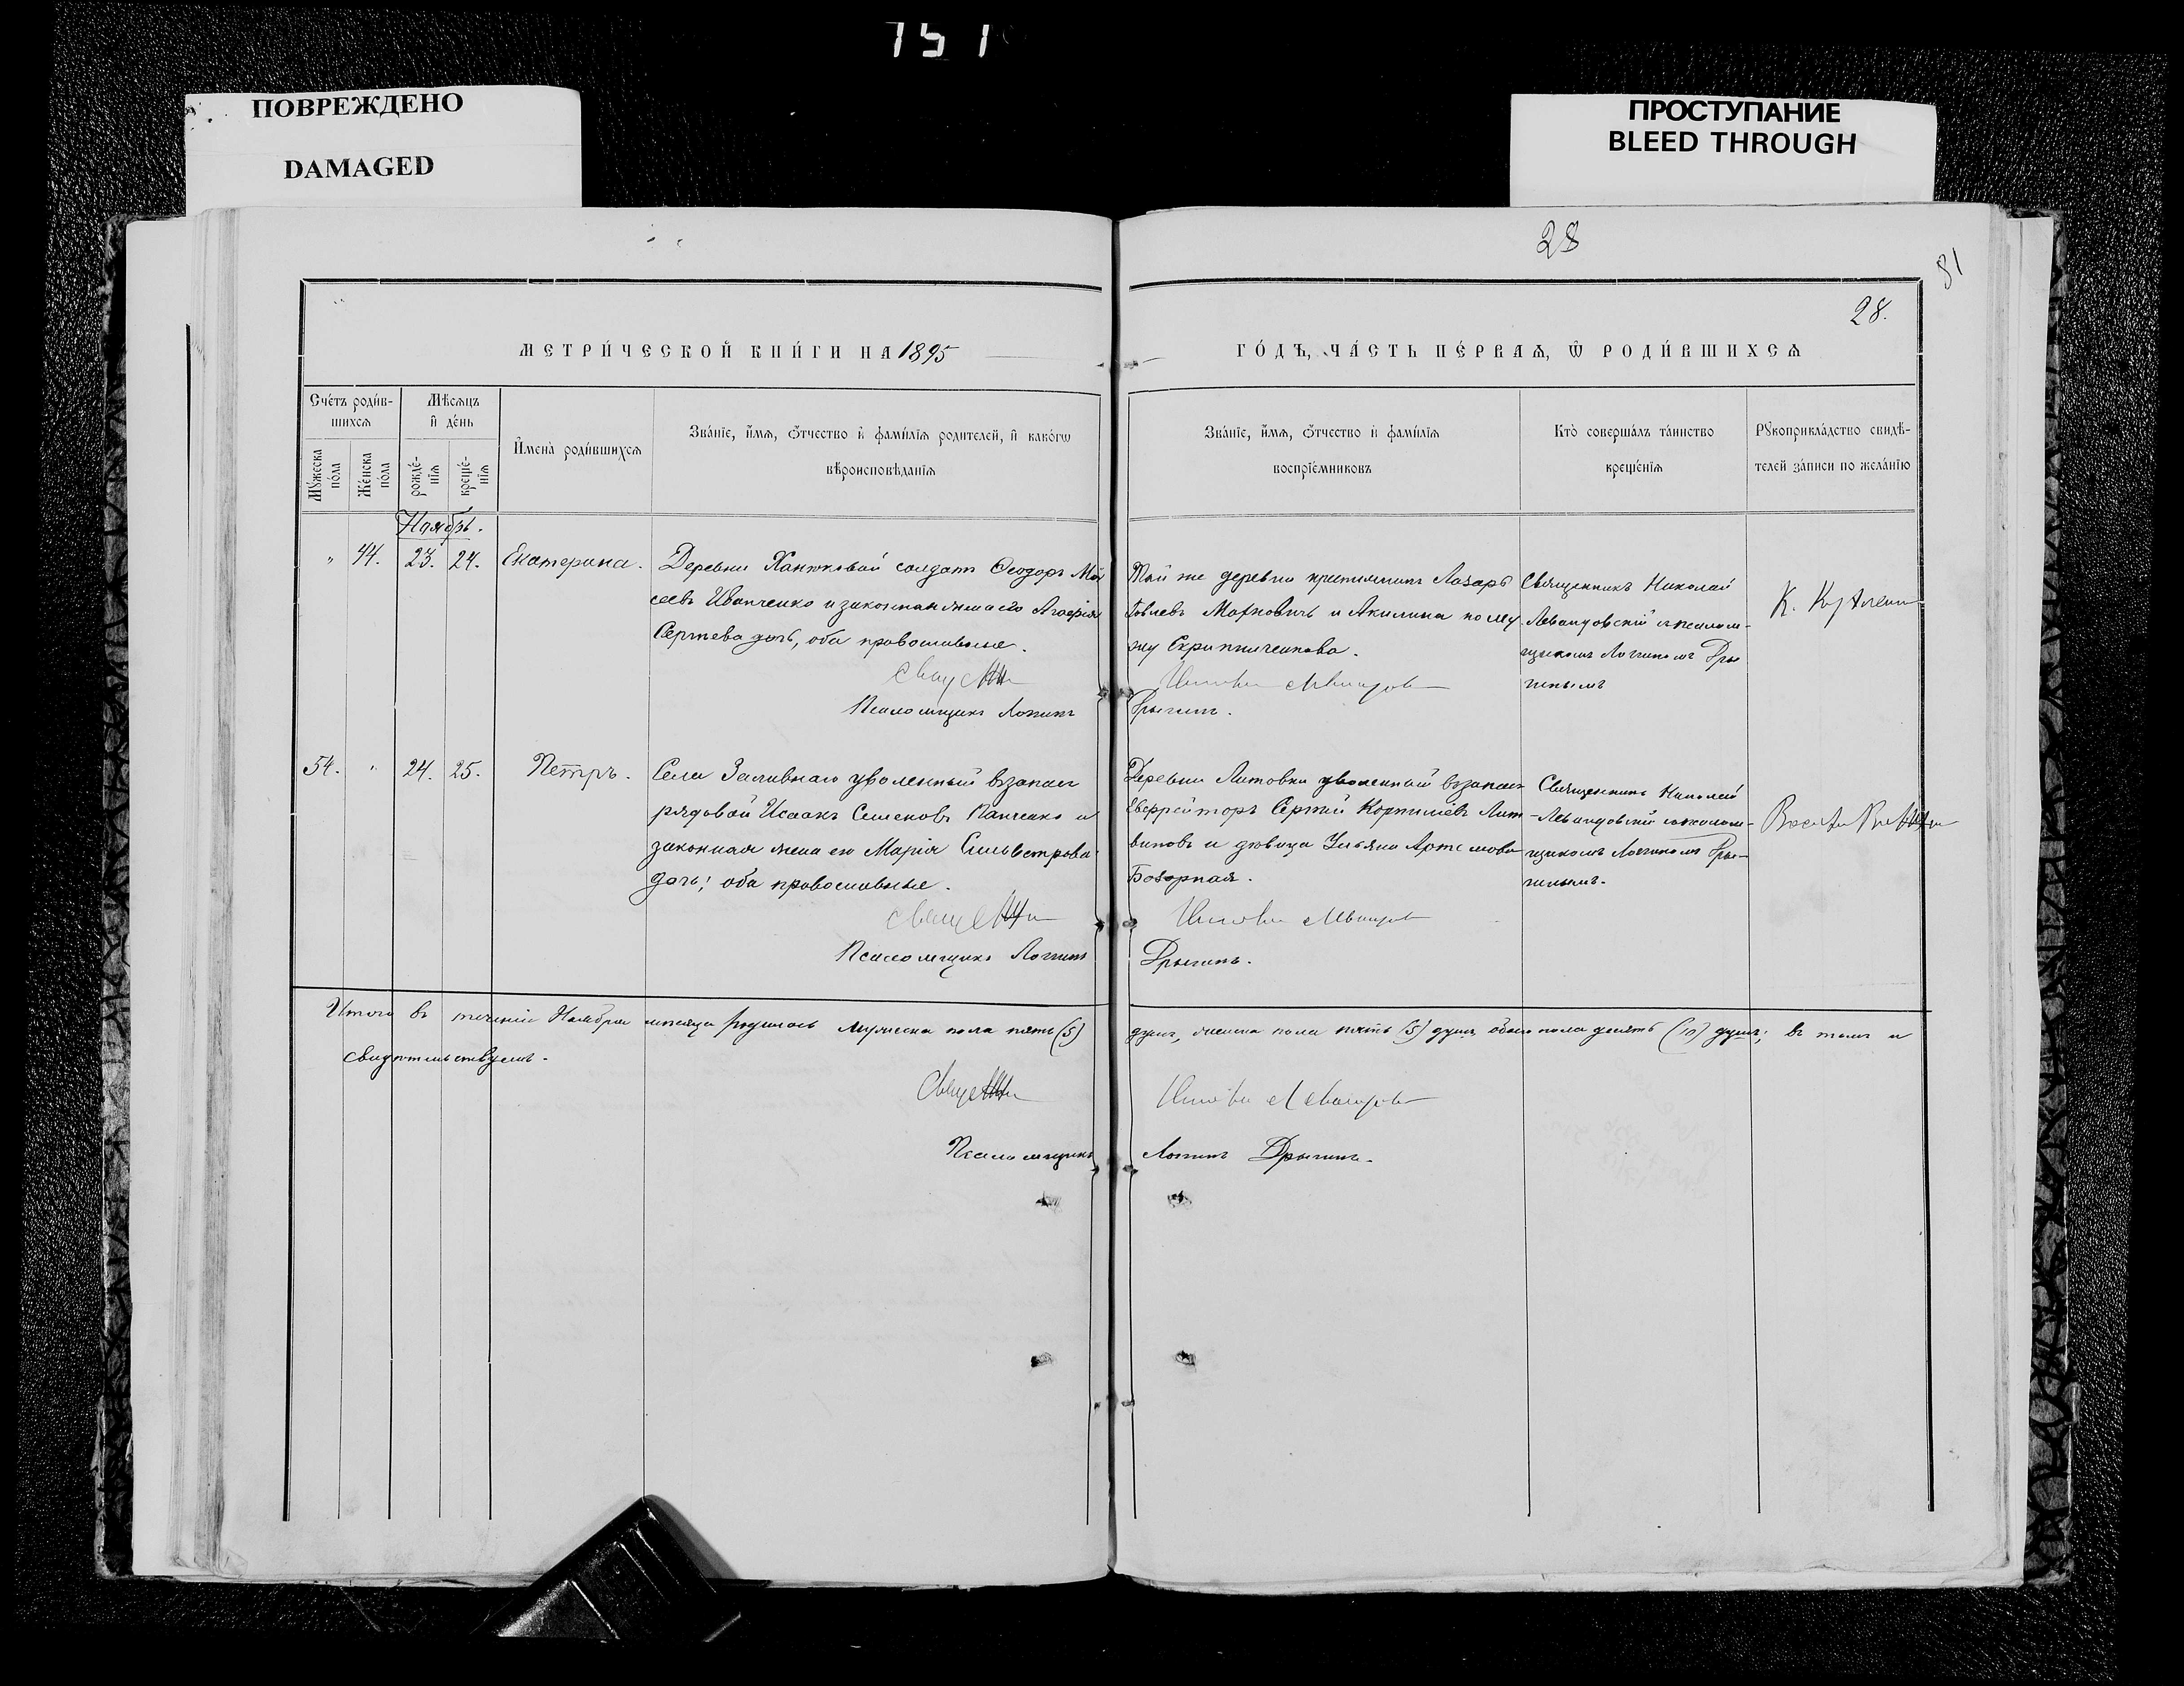 151
ПОВРЕЖДЕНО
DAMAGED
ПРОСТУПАНИЕ
BLEED THROUGH
28
81
28.
МЕТРИ́ЧЕСКОЙ КНИ́ГИ НА 1895
ГО́ДЪ, ЧА́СТЬ ПЕ́РВАѦ, Ѿ РОДИ́ВШИХСѦ
Сче́тъ роди́в-
шихсѧ
Мꙋ́жеска
по́ла
Же́нска
по́ла
Мѣ́сѧцъ
и҆ де́нь
рожде́-
нїѧ
креще́-
нїѧ
И҆мена̀ роди́вшихсѧ
Зва́нїе, и҆́мѧ, ѻ҆́тчество и҆ фами́лїѧ роди́телей, и҆ како́гѡ
вѣроисповѣ́данїѧ
Зва́нїе, и҆́мѧ, ѻ҆́тчество и҆ фами́лїѧ
воспрїе́мниковъ
Кто̀ соверша́лъ та́инство
креще́нїѧ
Рꙋкоприкла́дство свидѣ́-
телей за́писи по жела́нїю
Ноябрь.
" 44. 23. 24. Екатерина. Деревни солдатъ Ѳеодоръ Мой
сеевъ Иванченко и законная жена его Агафія
Сергѣева дочь, оба православные.
Псаломщикъ Логгинъ
Той же деревни крестьянинъ Лазарь
Марковичъ и Акилина по му
жу Скрипниченкова.
Дрыгинъ.
Священникъ Николай
Левандовскій съ псалом-
щикомъ Логгиномъ Дры
гинымъ
К.
54. " 24. 25. Петръ. Села Заливнаго уволенный въ запасъ
рядовой Исаакъ Семеновъ Панченко и
законная жена его Марія Сильвестрова
дочь; оба православные.
Псаломщикъ Логгинъ
Деревни Литовки уволенный въ запасъ
Ефрейторъ Сергій Корнилiевъ Лит-
виновъ и дѣвица Ульяна Артемова
Дрыгинъ.
Священникъ Николай
Левандовскій съ псалом-
щикомъ Логгиномъ Дры-
гинымъ.
Итого въ теченіи Ноября мѣсяца родилось мужеска пола пять (5) душъ, женска пола пять (5) душъ, обоего пола десять (10) душъ; въ томъ и
свидѣтельствуемъ.
Псаломщикъ Логгинъ Дрыгинъ.